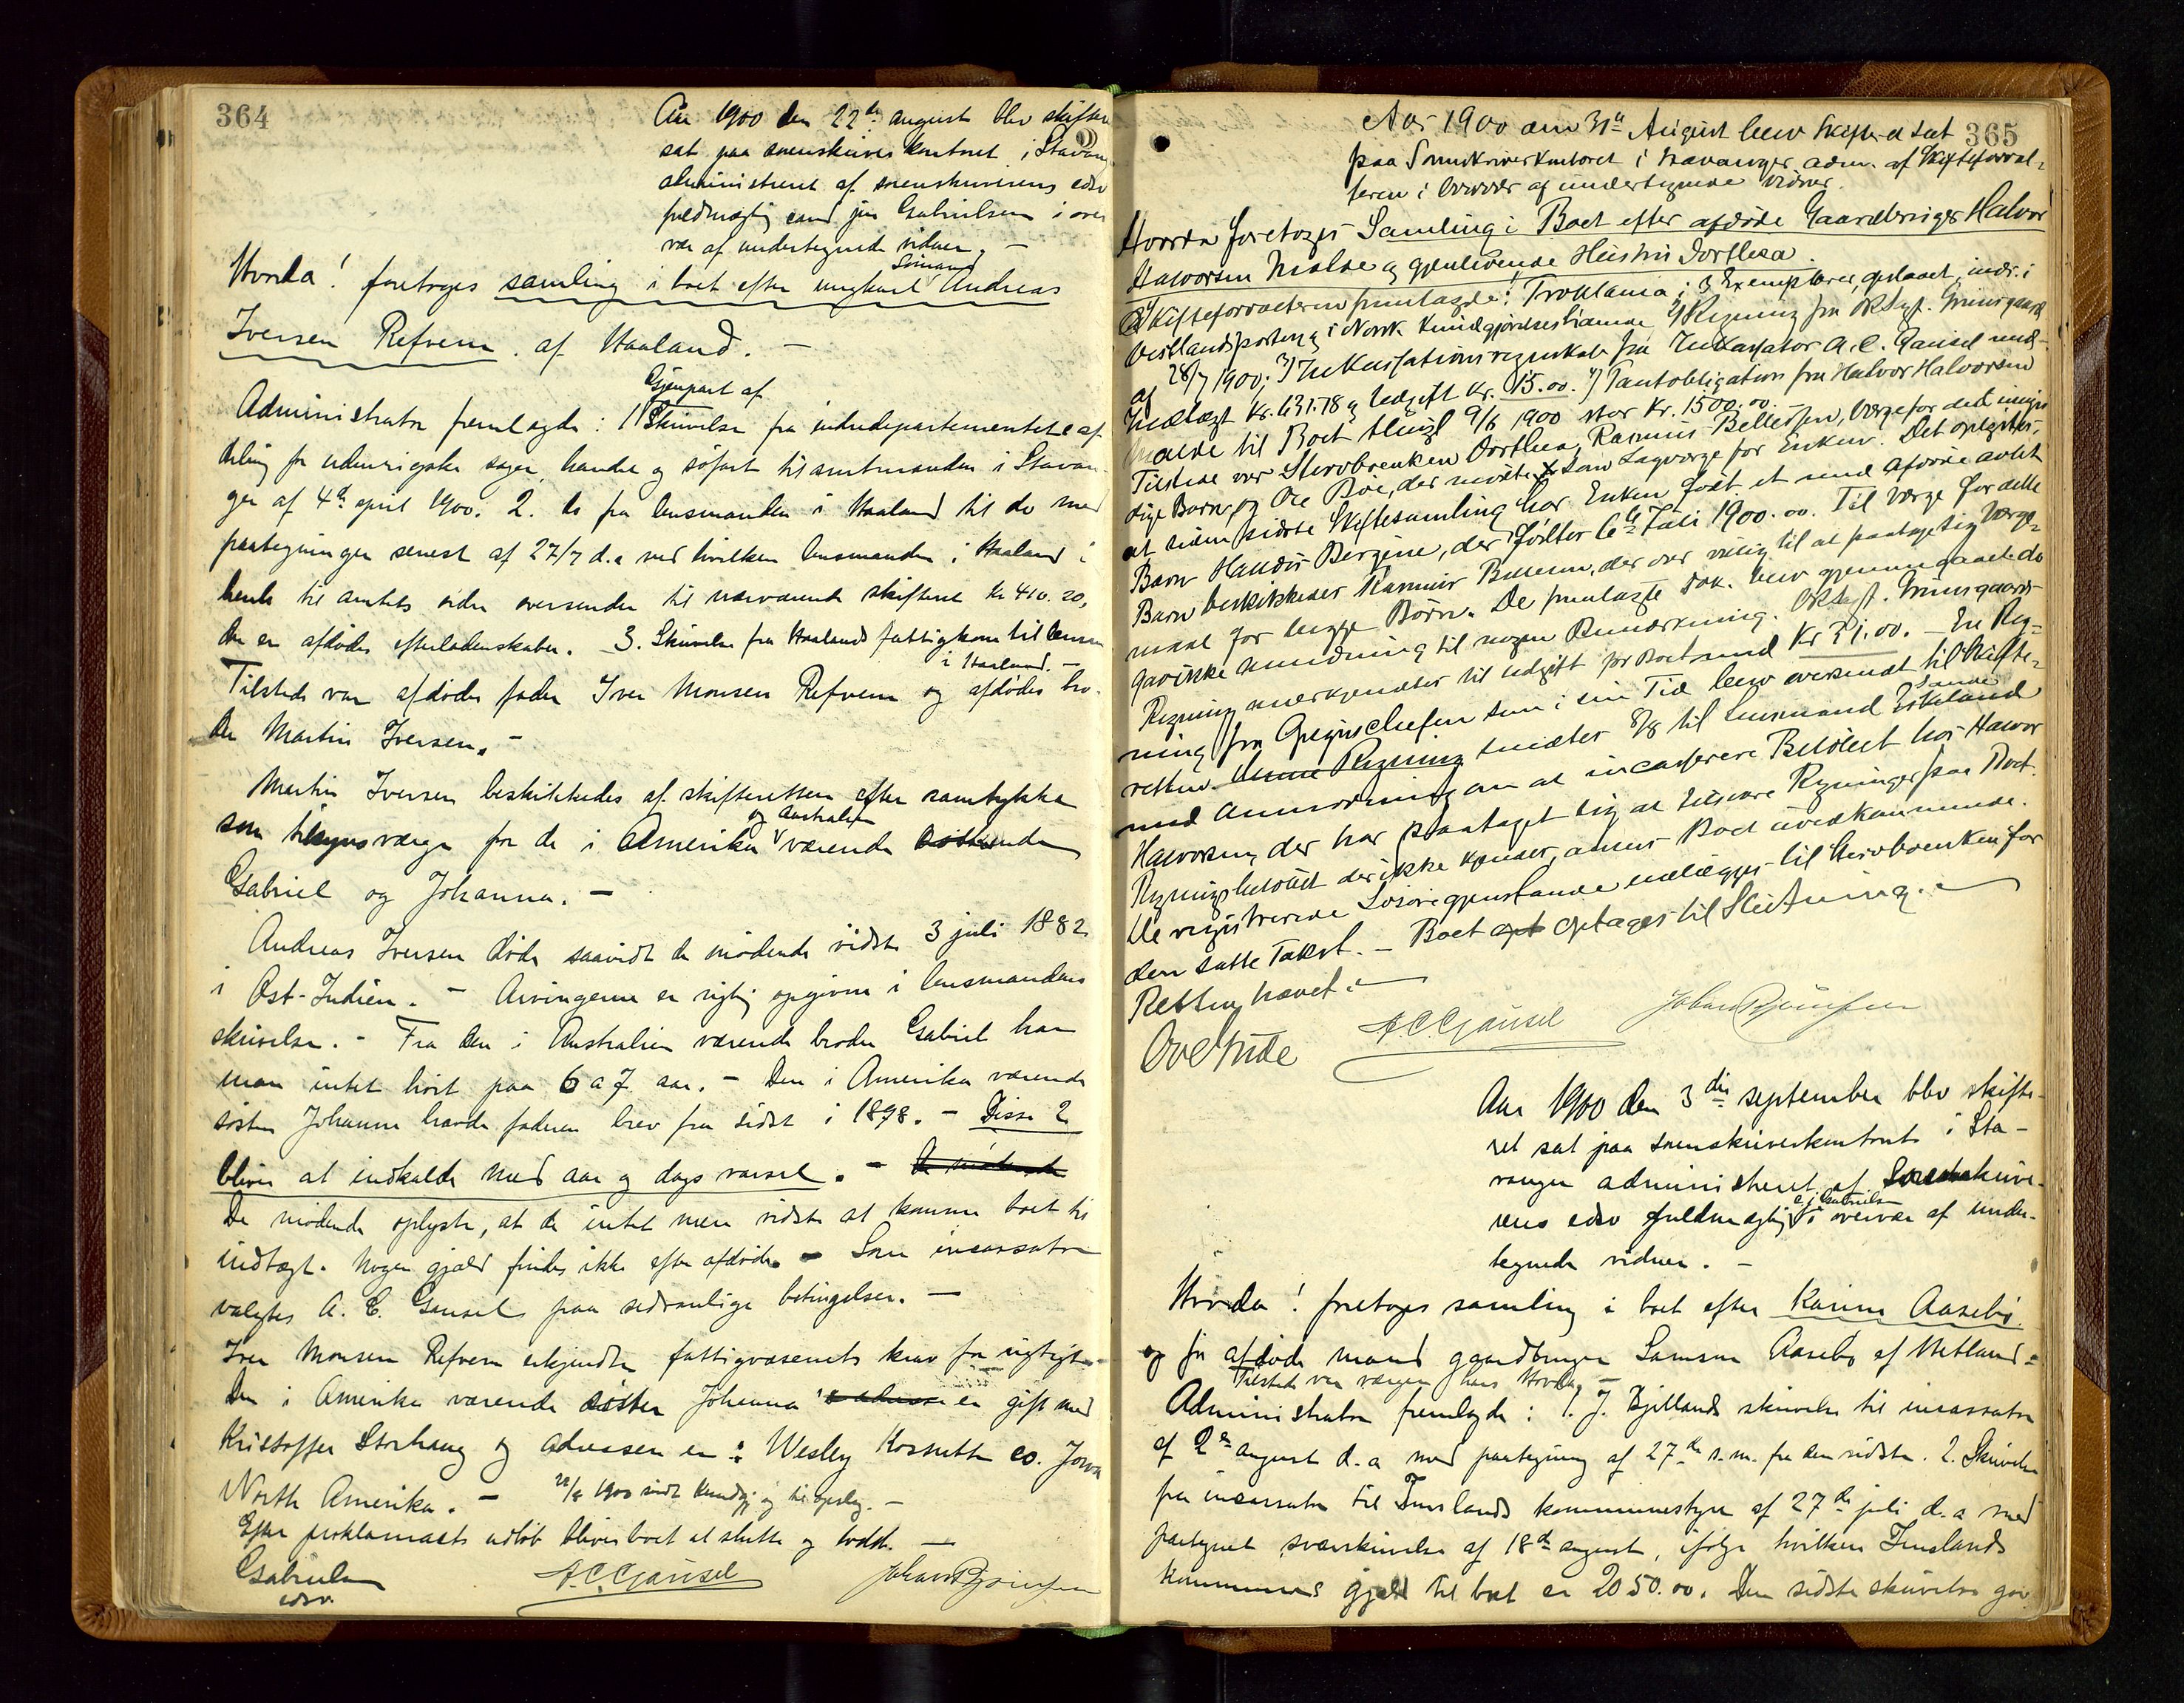 364
Aar 1900 den 22de august blev skifteret
sat paa sorenskriverkontoret i Stavanger
administreret af sorenskriverens edsv
fuldmægtig cand jur Gabrielsen i over
vær af undertegnede vidner. —
Hvorda! foretoges samling i boet efter ungkarl Sömand Andreas
Iversen Refvem af Haaland. —
Administrator fremlagde: 1) Gjenpart af Skrivelse fra indredepartementets af
deling for udenrigske sager, handel og söfart til amtmanden i Stavan-
ger af 4de april 1900. 2. do fra lensmanden i Haaland til do med
paategninger senest af 27/7 d.a ved hvilken lensmanden i Haaland i
hend til amtets ordre oversender til nærværende skifteret Kr 410.20,
der er afdødes efterladenskaber. 3. Skrivelse fra Haalands fattigkom til lensm
i Haaland. —
Tilstede var afdødes fader Iver Monsen Refvem og afdødes bro-
der Martin Iversen. —
Martin Iversen beskikkedes af skifteretten efter samtykke
som tilsynsværge for de i Amerika og Australien værende
Gabriel og Johanna. —
Andreas Iversen döde saavidt de mödende vidste 3 juli 1882
i Ost-Indien. — Arvingerne er rigtig opgivne i lensmandens
skrivelse. — Fra den i Australien værende broder Gabriel har
man intet hört paa 6 a 7 aar. — Den i Amerika værende
söster Johanne havde faderen brev fra sidst i 1898. — Disse 2
bliver at indkalde med aar og dags varsel. — De mödende
De mödende oplyste, at de intet mere vidste at komme boet til
indtægt. Nogen gjæld findes ikke efter afdøde. — Som incassator
valgtes A. C. Gausel paa sedvanlige betingelser. —
Iver Monsen Refvem erkjendte fattigvæsenets krav for rigtigt.
Den i Amerika værende söster Johanna er gift med
Kristoffer Storhaug og adressen er: Wesley Kossuth co. Jowa
North Amerika. — 22/8 1900 sendt kundgj og til opslag. —
Efter proklamaets udløb bliver boet at slutte og lodde. —
Gabrielsen A.C. Gausel Johan Bjørnsen
edsv.
365
Aar 1900 den 31te August blev Skifteret sat
paa Sorenskriverkontoret i Stavanger adm. af Skifteforval-
teren i Overvær af undertegnede Vidner.
Hvorda foretoges Samling i Boet efter afdøde Gaardbruger Halvor
Halvorsen Malde og gjenlevende Hustru Dorthea.
Skifteforvalteren fremlagde: 1) Proklama i 3 Exemplarer, opslaaet, indr. i
Vestlandsposten og i Norsk Kundgjørelsestidende 2) Regning fra ORSagf. Grimsgaard
af 28/7 1900; 3) Inkassationsregnskab fra Inkassator A. C. Gausel med
Indtægt Kr. 631.78 og Udgift Kr. 15.00. 4) Pantobligation fra Halvor Halvorsen
Malde til Boet tlingl 9/6 1900 stor Kr. 1500.00. —
Tilstede var Stervboenken Dorthea, Rasmus Bellesen, Værge for det umyn
dige Barn, og Ole Bøe, der mødte som Lagværge for Enken. Det oplystes,
at siden sidste Skiftesamling har Enken født et med Afdøde avlet
Barn Halldis Bergine, der fødtes 6te Juli 1900.00. Til Værge for dette
Barn beskikkedes Rasmus Bellesen, der var villig til at paatage sig Værge-
maal for begge Børn. De fremlagte Dok. blev gjennemgaaet. do
gav ikke Anledning til nogen Bemærkning. ORSagf. Grimsgaards
Regning anerkjendtes til udgift for Boet med Kr 31.00. — En Reg-
ning fra Grejnschefen som i sin Tid blev oversendt til Skifte-
retten. Denne Regning sendtes 8/8 til Lensmand Eskeland Sande
med Anmodning om at incassere Beløbet hos Halvor
Halvorsen, der har paataget sig at tilsvare Regningen paa Boet.
Regningsbeløbet der ikke kjendes, ansees Boet uvedkommende.
De registrerede Løsøregjenstande udlægges til Stervboenken for
den satte Takst. — Boet opt optages til Slutning. —
Retten hævet. —
Ove Gude A.C. Gausel Johan Bjørnsen
Aar 1900 den 3die september blev skifte-
ret sat paa sorenskriverkontoret i Sta-
vanger administreret af Sorenskrive-
rens edsv fuldmægtig C J Gabrielsen i overvær af under-
tegnede vidner. —
Hvorda! foretoges samling i boet efter Karine Aasebö
og för afdøde mand gaardbruger Samson Aasebö af Hetland.
Tilstede var værgen Lars Hovda. —
Administrator fremlagde: 1. J. Bjellands skrivelse til incassator
af 2den august d.a med paategning af 27de s.m. fra den sidste. 2. Skrivelse
fra incassator til Imslands kommunestyre af 27de juli d.a med
paategnet svarskrivelse af 18de august, ifølge hvilken Imslands
kommunes gjæld til boet er 2050.00. Den sidste skrivelse gav